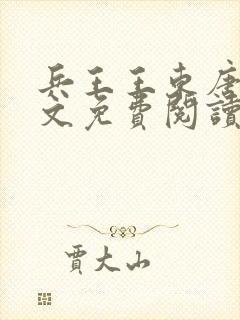 兵王王東唐
文免費閱讀
賈大山